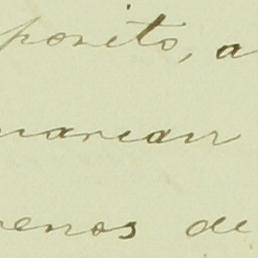 posito, a
marcan
enos de